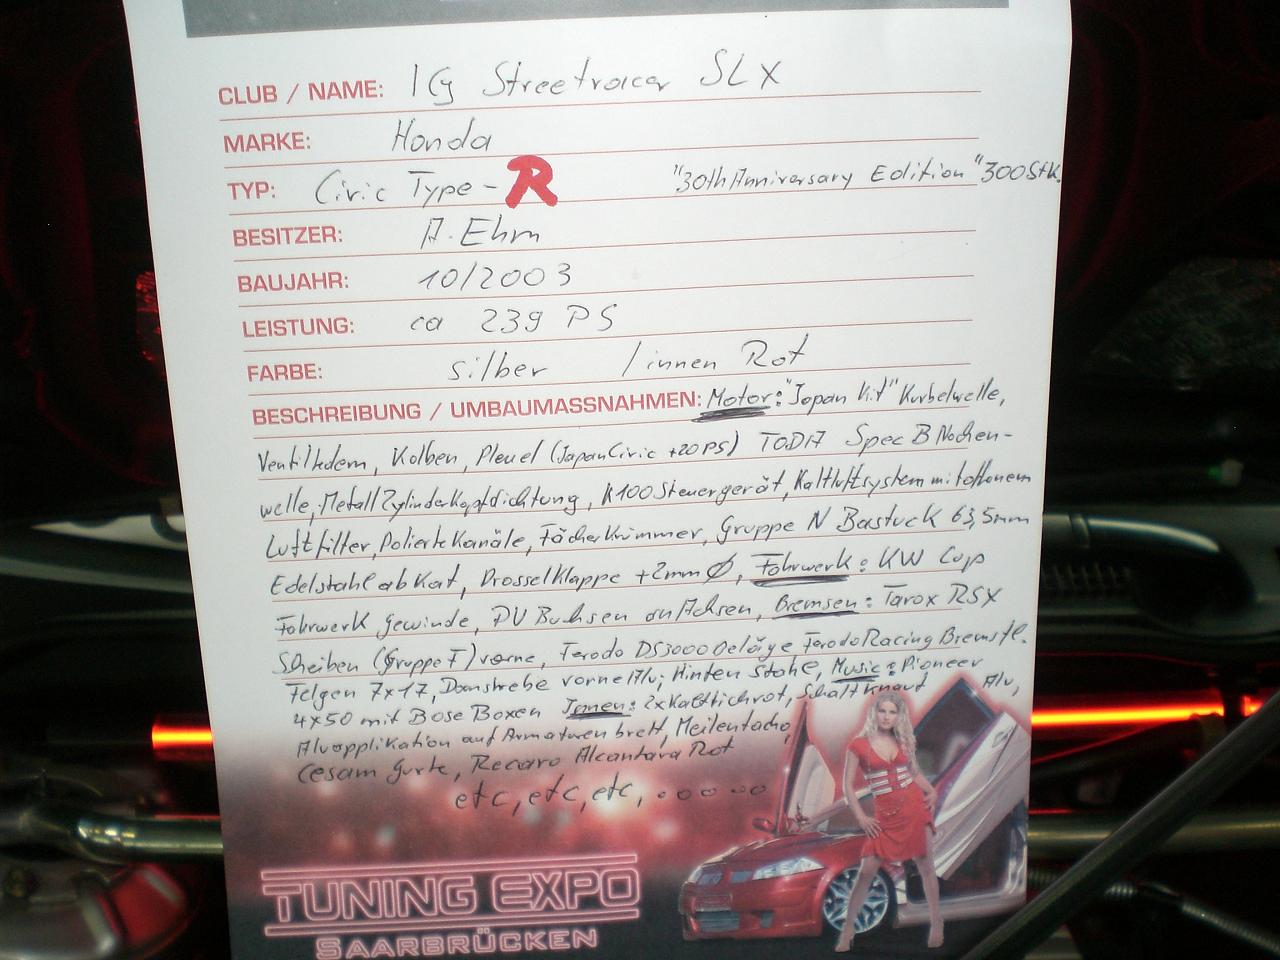 CLUB / NAME: IG Streetracer SLX
MARKE: Honda
TYP: Civic Type-R "30th Anniversary Edition" 300Stk.
BESITZER: A. Ehm
BAUJAHR: 10/2003
LEISTUNG: ca 239 PS
FARBE: silber / innen Rot
BESCHREIBUNG / UMBAUMASSNAHMEN: Motor: "Japan Kit" Kurbelwelle,
Ventilfedern, Kolben, Pleuel (Japan Civic +20PS) TODA Spec B Nocken-
welle, Metall Zylinderkopfdichtung, K100 Steuergerät, Kaltluftsystem mit offenem
Luftfilter, Polierte Kanäle, Fächerkrümmer, Gruppe N Bastuck 63,5mm
Edelstahl ab Kat, Drosselklappe +2mm Ø, Fahrwerk: KW Cup
Fahrwerk Gewinde, PU Buchsen an Achsen, Bremsen: Tarox RSX
Scheiben (Gruppe F) vorne, Ferodo DS3000 Beläge Ferodo Racing Bremsfl.
Felgen 7x17, Domstrebe vorne Alu, Hinten Stahl, Music: Pioneer
4x50 mit Bose Boxen Innen: 2x Kaltlicht rot, Schaltknauf Alu,
Aluapplikation auf Armaturenbrett, Meilentacho,
Gurte, Recaro Alcantara Rot
etc, etc, etc, .......
TUNING EXPO
SAARBRÜCKEN